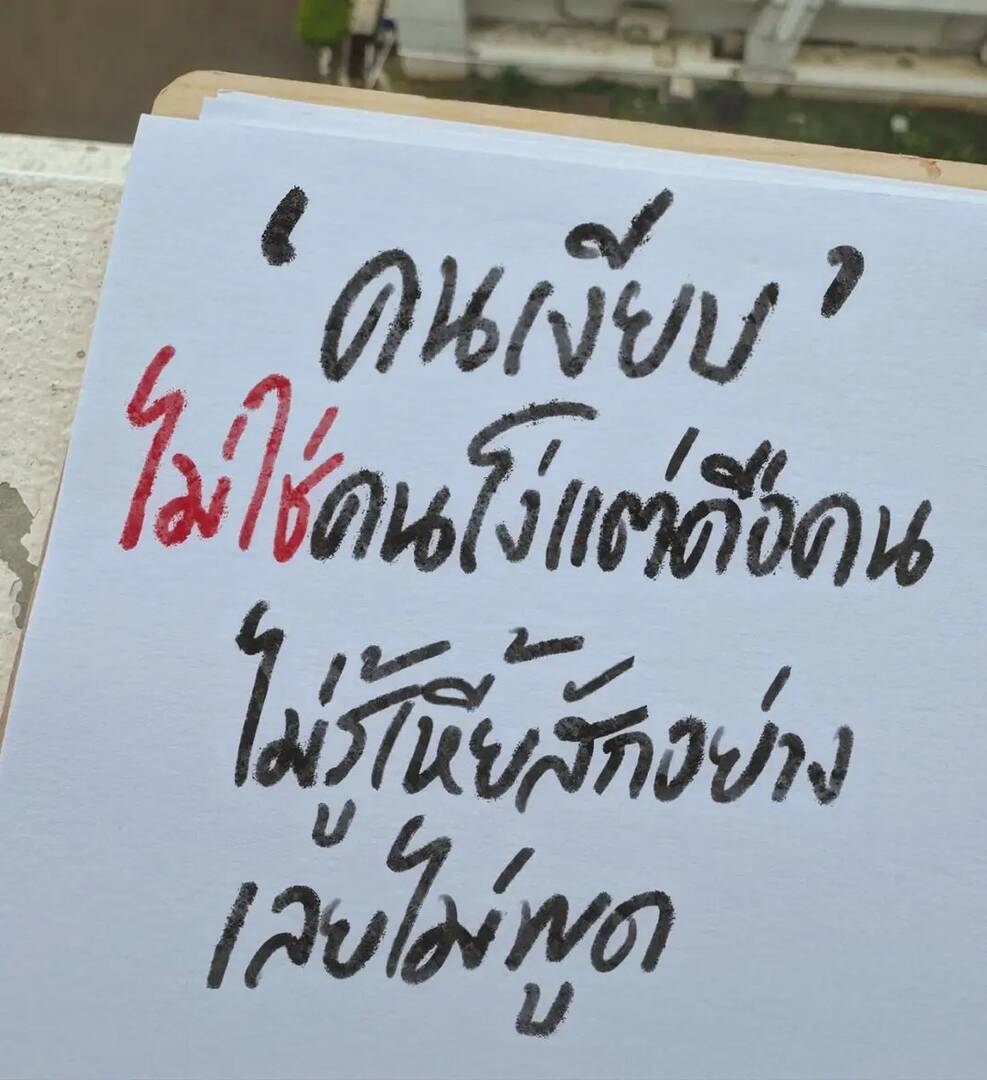 ‘คนเงียบ’
ไม่ใช่คนโง่แต่คือคน
ไม่รู้เหี้ยสักอย่าง
เลยไม่พูด